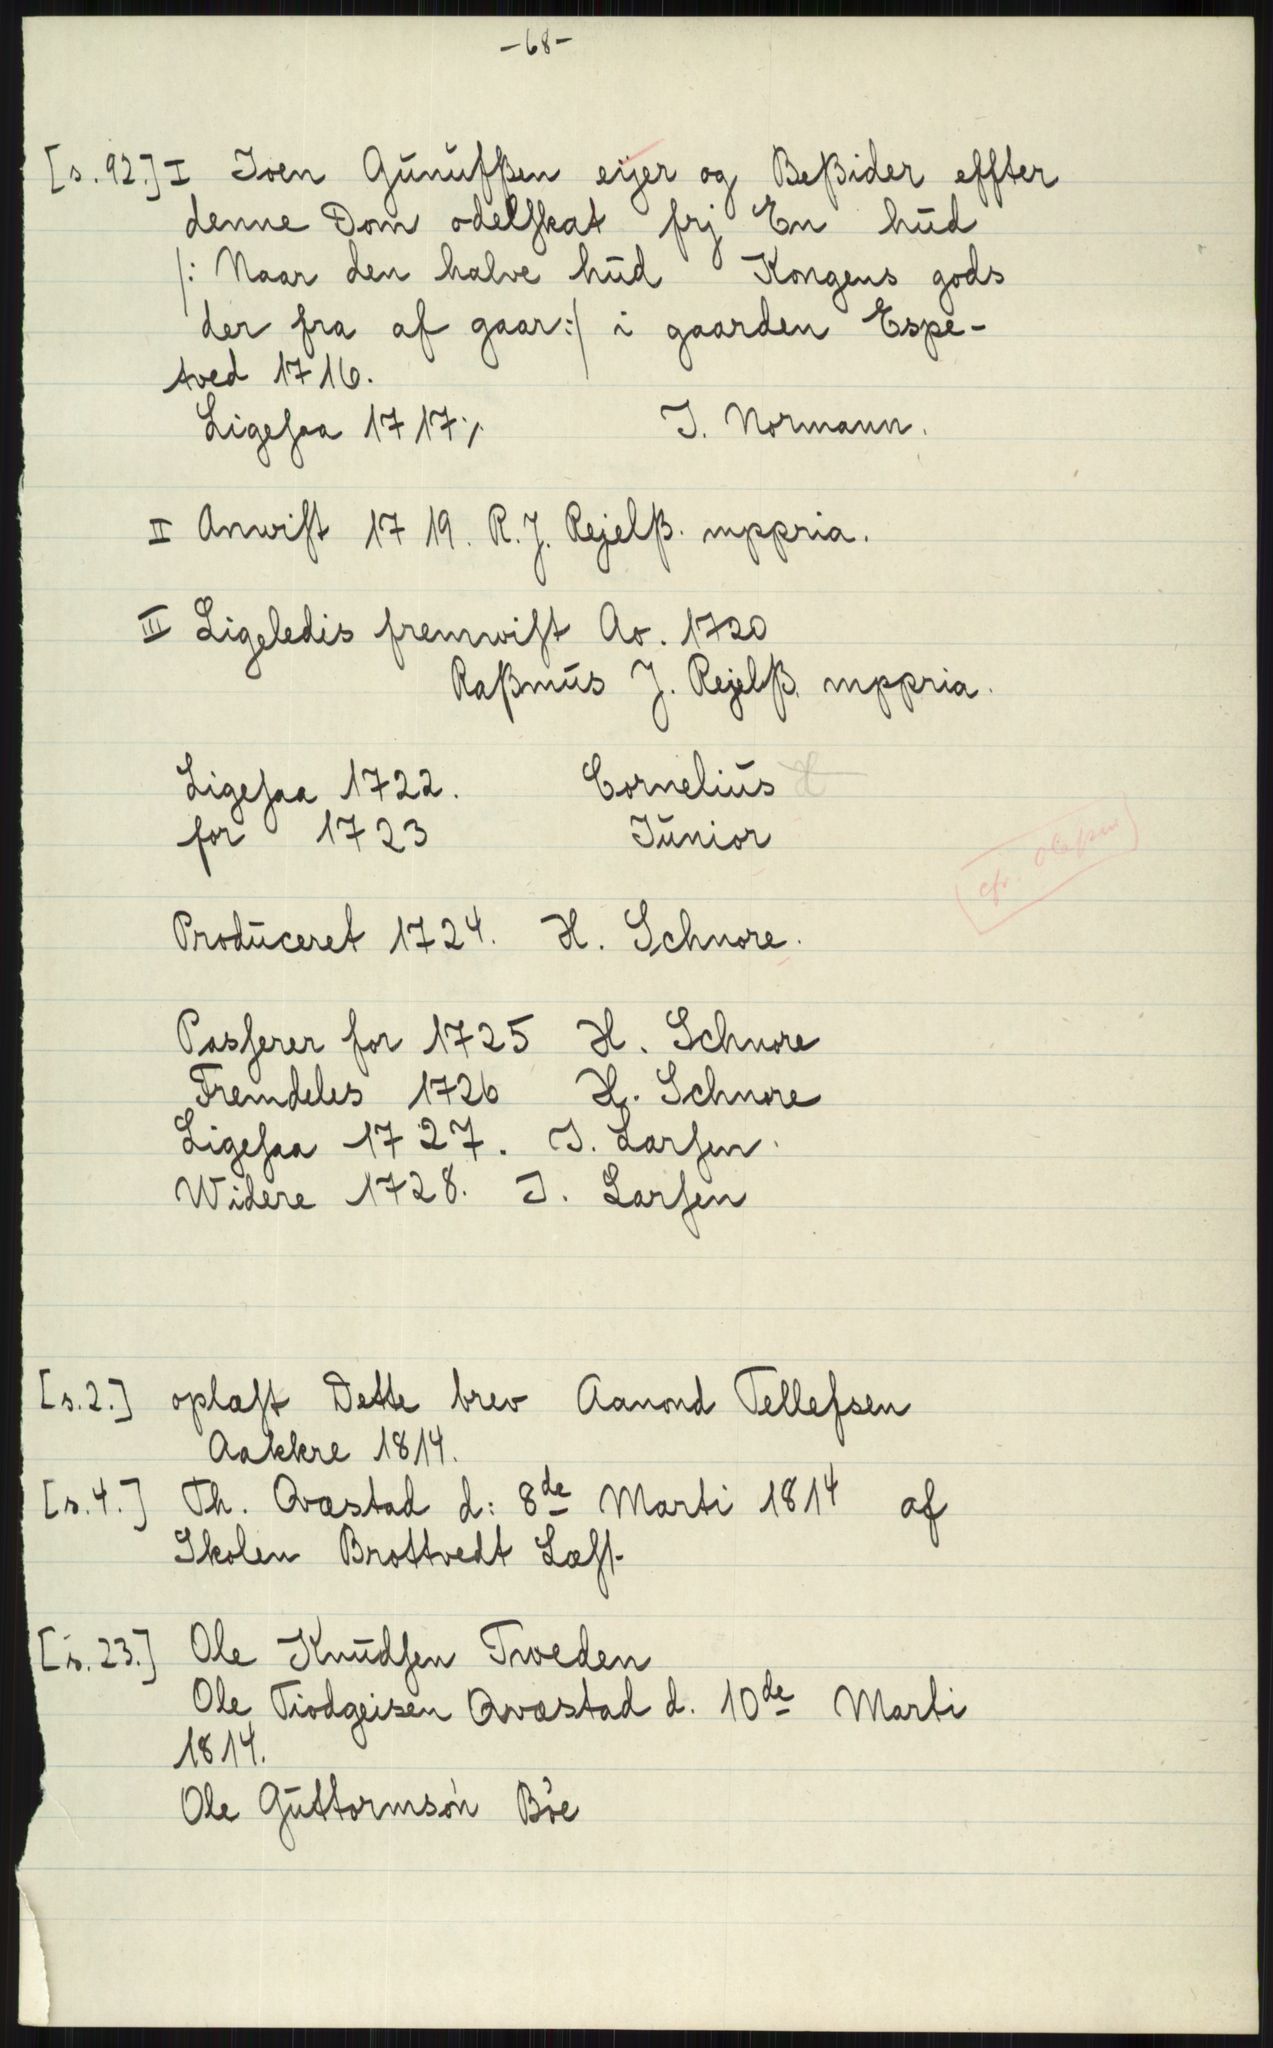 -68-
[s. 92.] I Joen Gunufßen eijer og Beßider effter
denne Dom odelſkat frj En hud
/: Naar den halve hud Kongens gods
der fra af gaar:/ i gaarden Espe-
tved 1716.
Ligeſaa 1717 ⁒ J. Normann.
II Anwiſt 1719. R. J. Rejelß. mppria.
III Ligeledis fremwiſt Ao. 1720
Raßmus J. Rejelß. mppria.
Ligeſaa 1722. Cornelius
for 1723 Junior
cfr. Oleßen
Produceret 1724. H. Schnore.
Pasſerer for 1725 H. Schnore
Fremdeles 1726 H. Schnore
Ligeſaa 1727. J. Larſen.
Widere 1728. J. Larſen
[s. 2.] oplæſt Dette brev Aanond Tellefsen
Aakkre 1814.
[s. 4.] Th. Qvæstad d: 8de Marti 1814 af
Skolen Brottvedt Læſt
[s. 23.] Ole Knudſen Tweden
Ole Tiodgeisen Qvæstad d. 10de Marti
1814.
Ole Guttormsøn Bøe